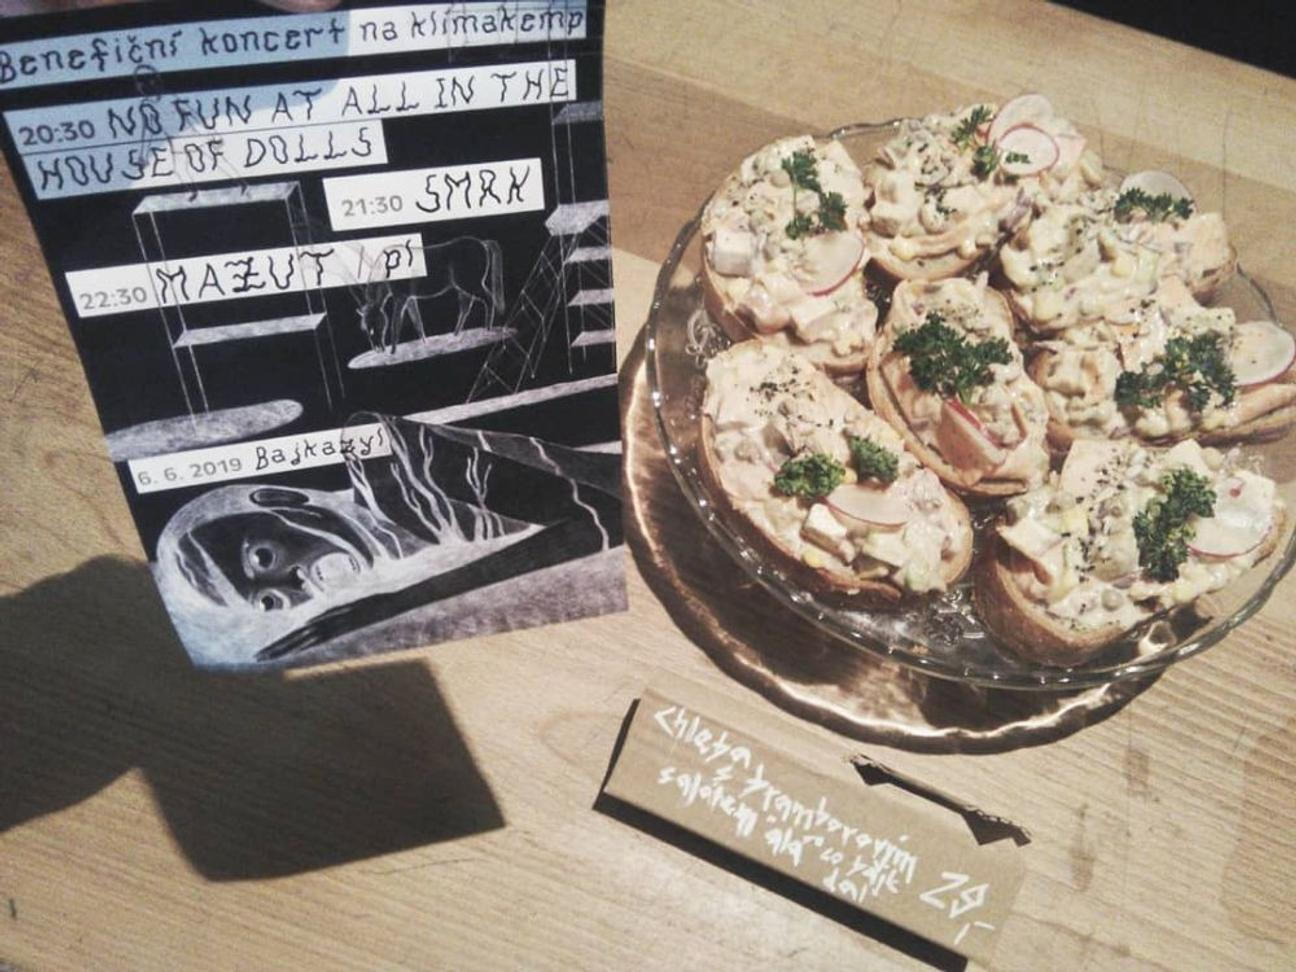 Benefiční koncert na klimakemp
20:30 NO FUN AT ALL IN THE
HOUSE OF DOLLS
21:30 SMRK
22:30 MAZUT / pl
6. 6. 2019 Bajkazyl
Chleba
s bramborovým
salátem àla
co bůh
dal
29,-